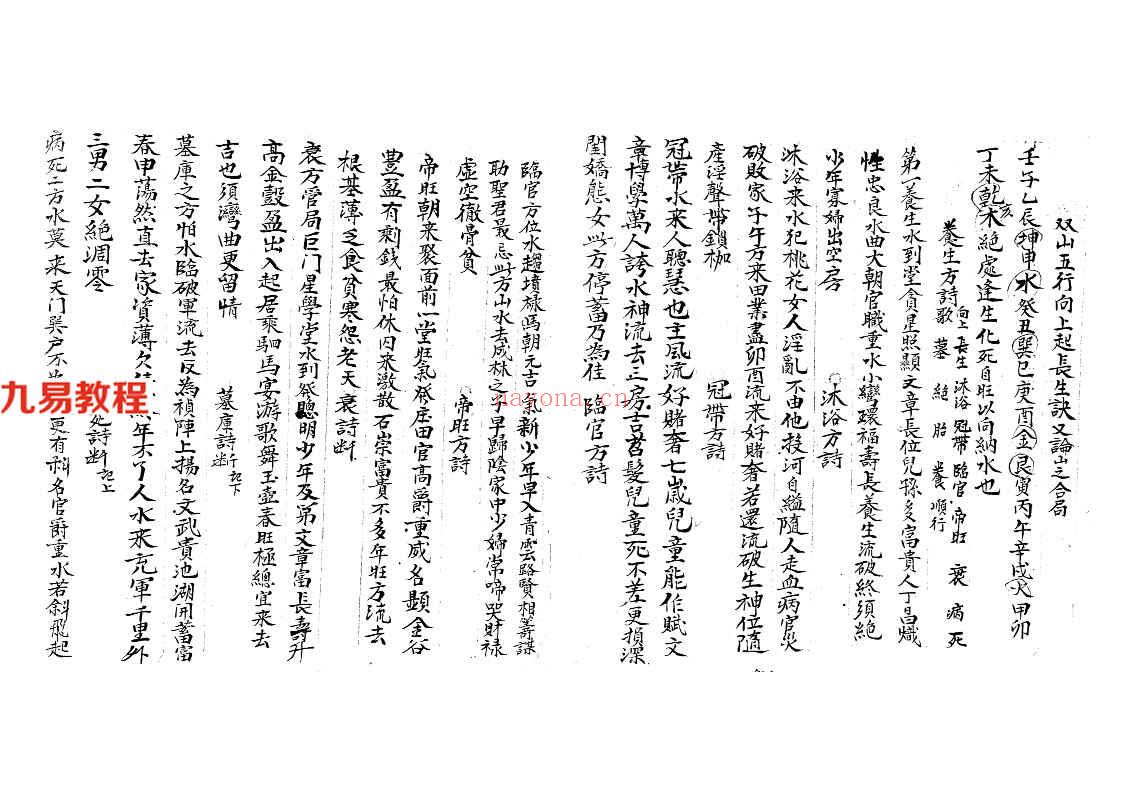 双山五行向上起長生訣又論山之合局
壬子乙辰坤申水癸丑巽巳庚酉金艮寅丙午辛戌火甲卯
丁未乾亥木絕處逢生化死自旺以向納水也
養生方詩歌 向上長生 沐浴 冠帶 臨官 帝旺 衰 病 死
墓 絕 胎 養 順行
第一養生水到堂貪星照顯文章長位兒孫多富貴人丁昌熾
性忠良水曲大朝官職重水小彎環福壽長養生流破終須絕
少年寡婦出空房 沐浴方詩
沐浴来水犯桃花女人淫亂不由他投河自縊隨人走血病官災
破敗家子午方来田業盡卯酉流来好賭奢若還流破生神位隨
產淫聲帶鎖枷 冠帶方詩
冠帶水来人聰慧也主風流好賭奢七歲兒童能作賦文
章博學萬人誇水神流去三房吉苕髮兒童死不差更損深
閨嬌態女此方停蓄乃為佳 臨官方詩
臨官方位水趨墳祿馬朝元吉氣新少年早入青雲路賢相籌謀
助聖君最忌此方山水去成林之子早歸陰家中少婦常啼哭財祿
虛空徹骨貧 帝旺方詩
帝旺朝来聚面前一堂旺氣發庄田官高爵重威名顯金谷
豐盈有剩錢最怕休囚来激散石崇富貴不多年旺方流去
根基薄乏食貧寒怨老天 衰詩斷
衰方管局巨門星學堂水到發聰明少年及第文章富長壽升
高金穀盈出入起居乘駟馬宴游歌舞玉壺春旺極總宜来去
吉也須灣曲更留情 墓庫詩斷 記下
墓庫之方怕水臨破軍流去反為禎陣上揚名文武貴池湖開蓄富
春申蕩然直去家資薄欠年不了人水来充軍千里外
三男二女絕凋零 死詩斷 記上
病死二方水莫来天门巽户不更有科名官爵重水若斜飛起
九易教程
nayona.cn